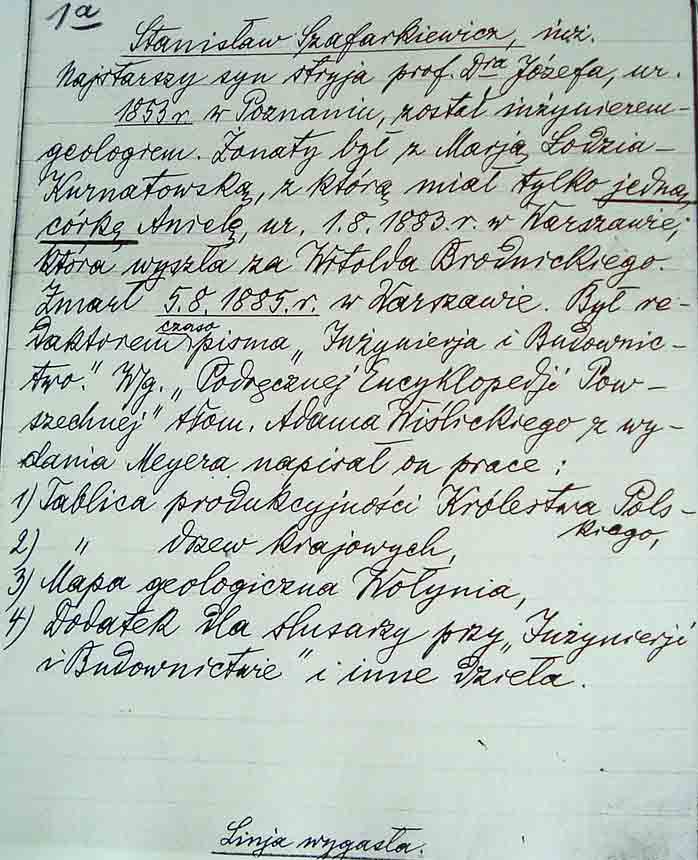 1a
Stanisław Szafarkiewicz, inż.
Najstarszy syn stryja prof. Dra Józefa, ur.
1853 r. w Poznaniu, został inżynierem-
geologiem. Żonaty był z Marją Łodzia-
Kurnatowską, z którą miał tylko jedną
córkę Anielę, ur. 1.8.1883.r. w Warszawie,
która wyszła za Witolda Brodnickiego.
Zmarł 5.8.1885.r. w Warszawie. Był re-
daktorem czasopisma „Inżynierja i Budownic-
two." Wg. „Podręcznej Encyklopedji Pow-
szechnej" tłom. Adama Wiślickiego z wy-
dania Meyera napisał on prace :
1) Tablica produkcyjności Królestwa Pols-
kiego,
2) " drzew krajowych,
3) Mapa geologiczna Wołynia,
4) Dodatek dla ślusarzy przy „Inżynierji
i Budownictwie" i inne dzieła.
Linja wygasła.